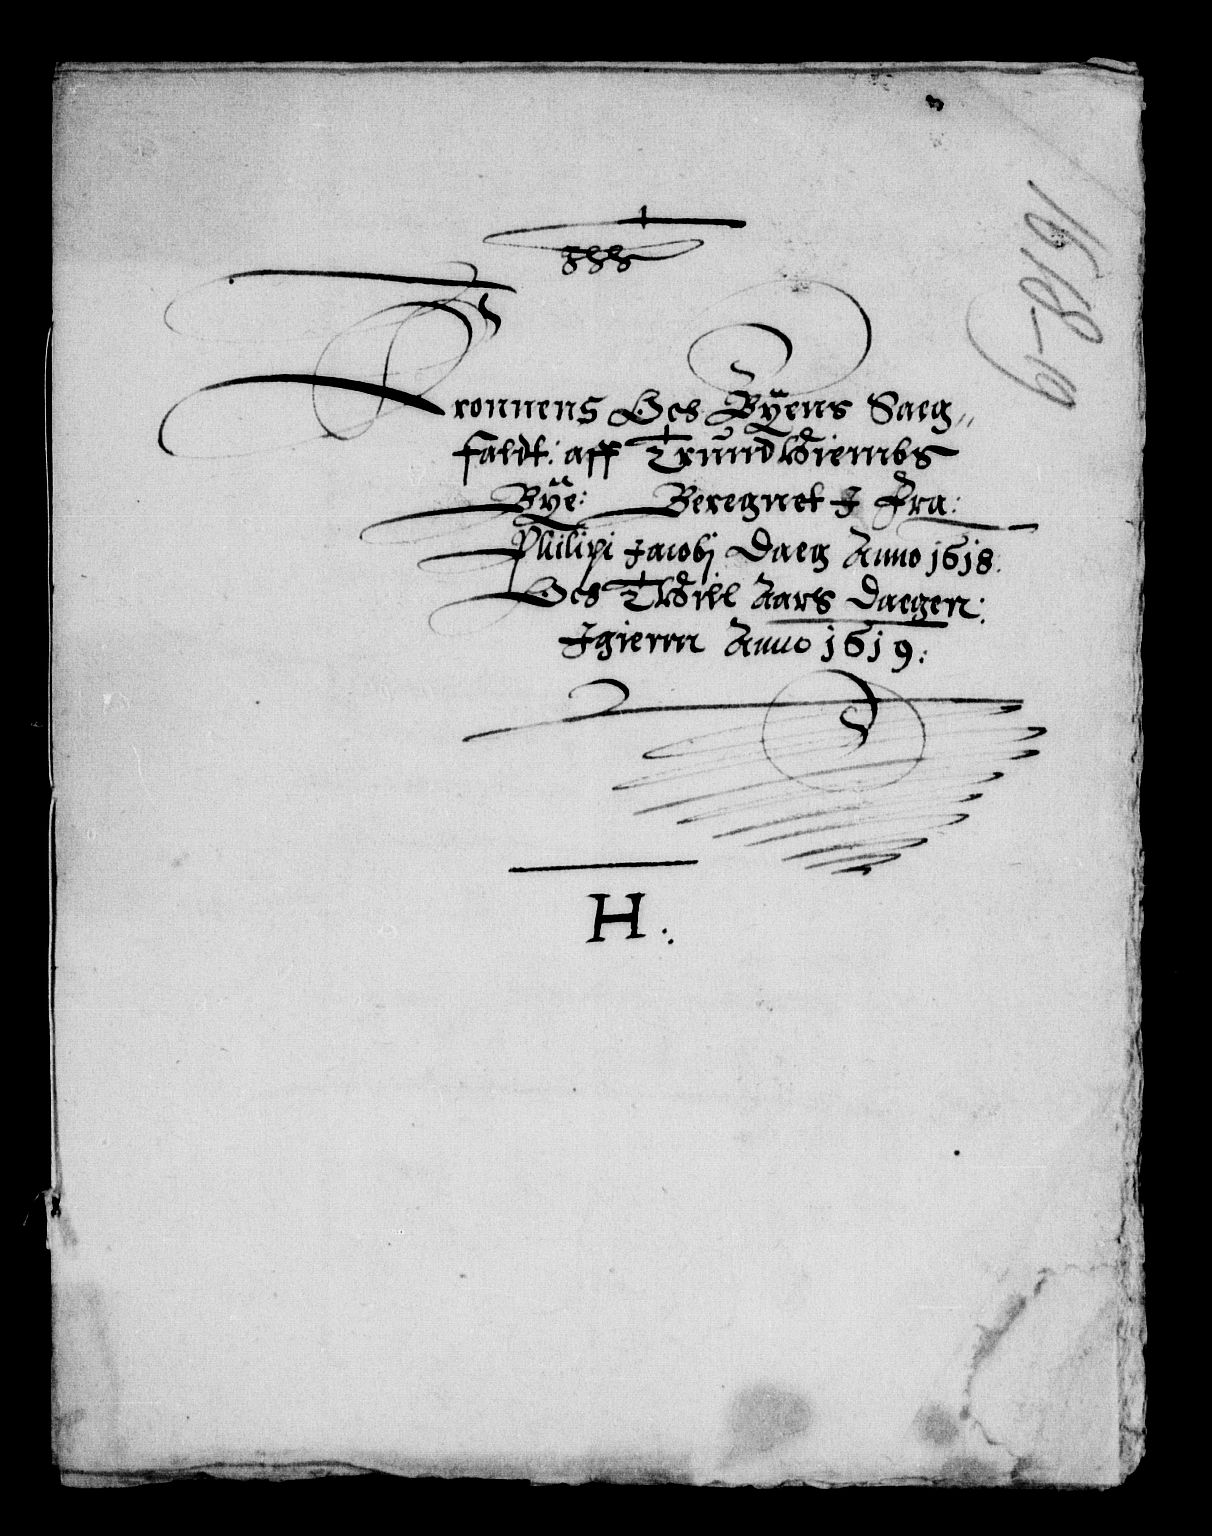 Jhs
1618-19
Kronnens Ocs Bÿens Saeg„
faldt: aff Trundhiembs
Bÿe: Beregnet J Fra:
Philipi Jacobj Daeg Anno 1618.
Ocs Thill Aars Daegen:
Jgienn Anno 1619:
H: